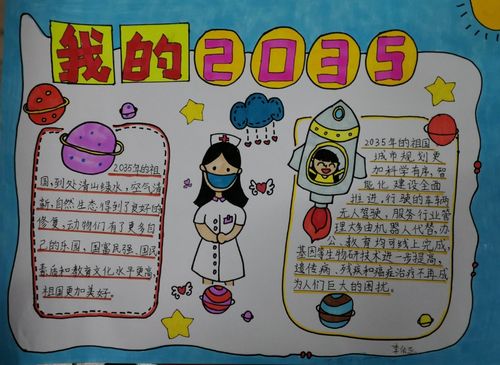 我的2035
2035年的祖
国,到处清山绿水,空气清
新,自然生态得到了良好的
修复,动物们有了更多自
己的乐园,国富民强,国民
素质和教育文化水平更高,
祖国更加美好。
2035年的祖国
城市规划更
加科学有序,智
能化建设全面
推进,行驶的车辆
无人驾驶,服务行业管
理大多由机器人代替,办
公、教育均可线上完成,
基因等生物研技术进一步提高,
遗传病、残疾和癌症治疗不再成
为人们巨大的困扰。